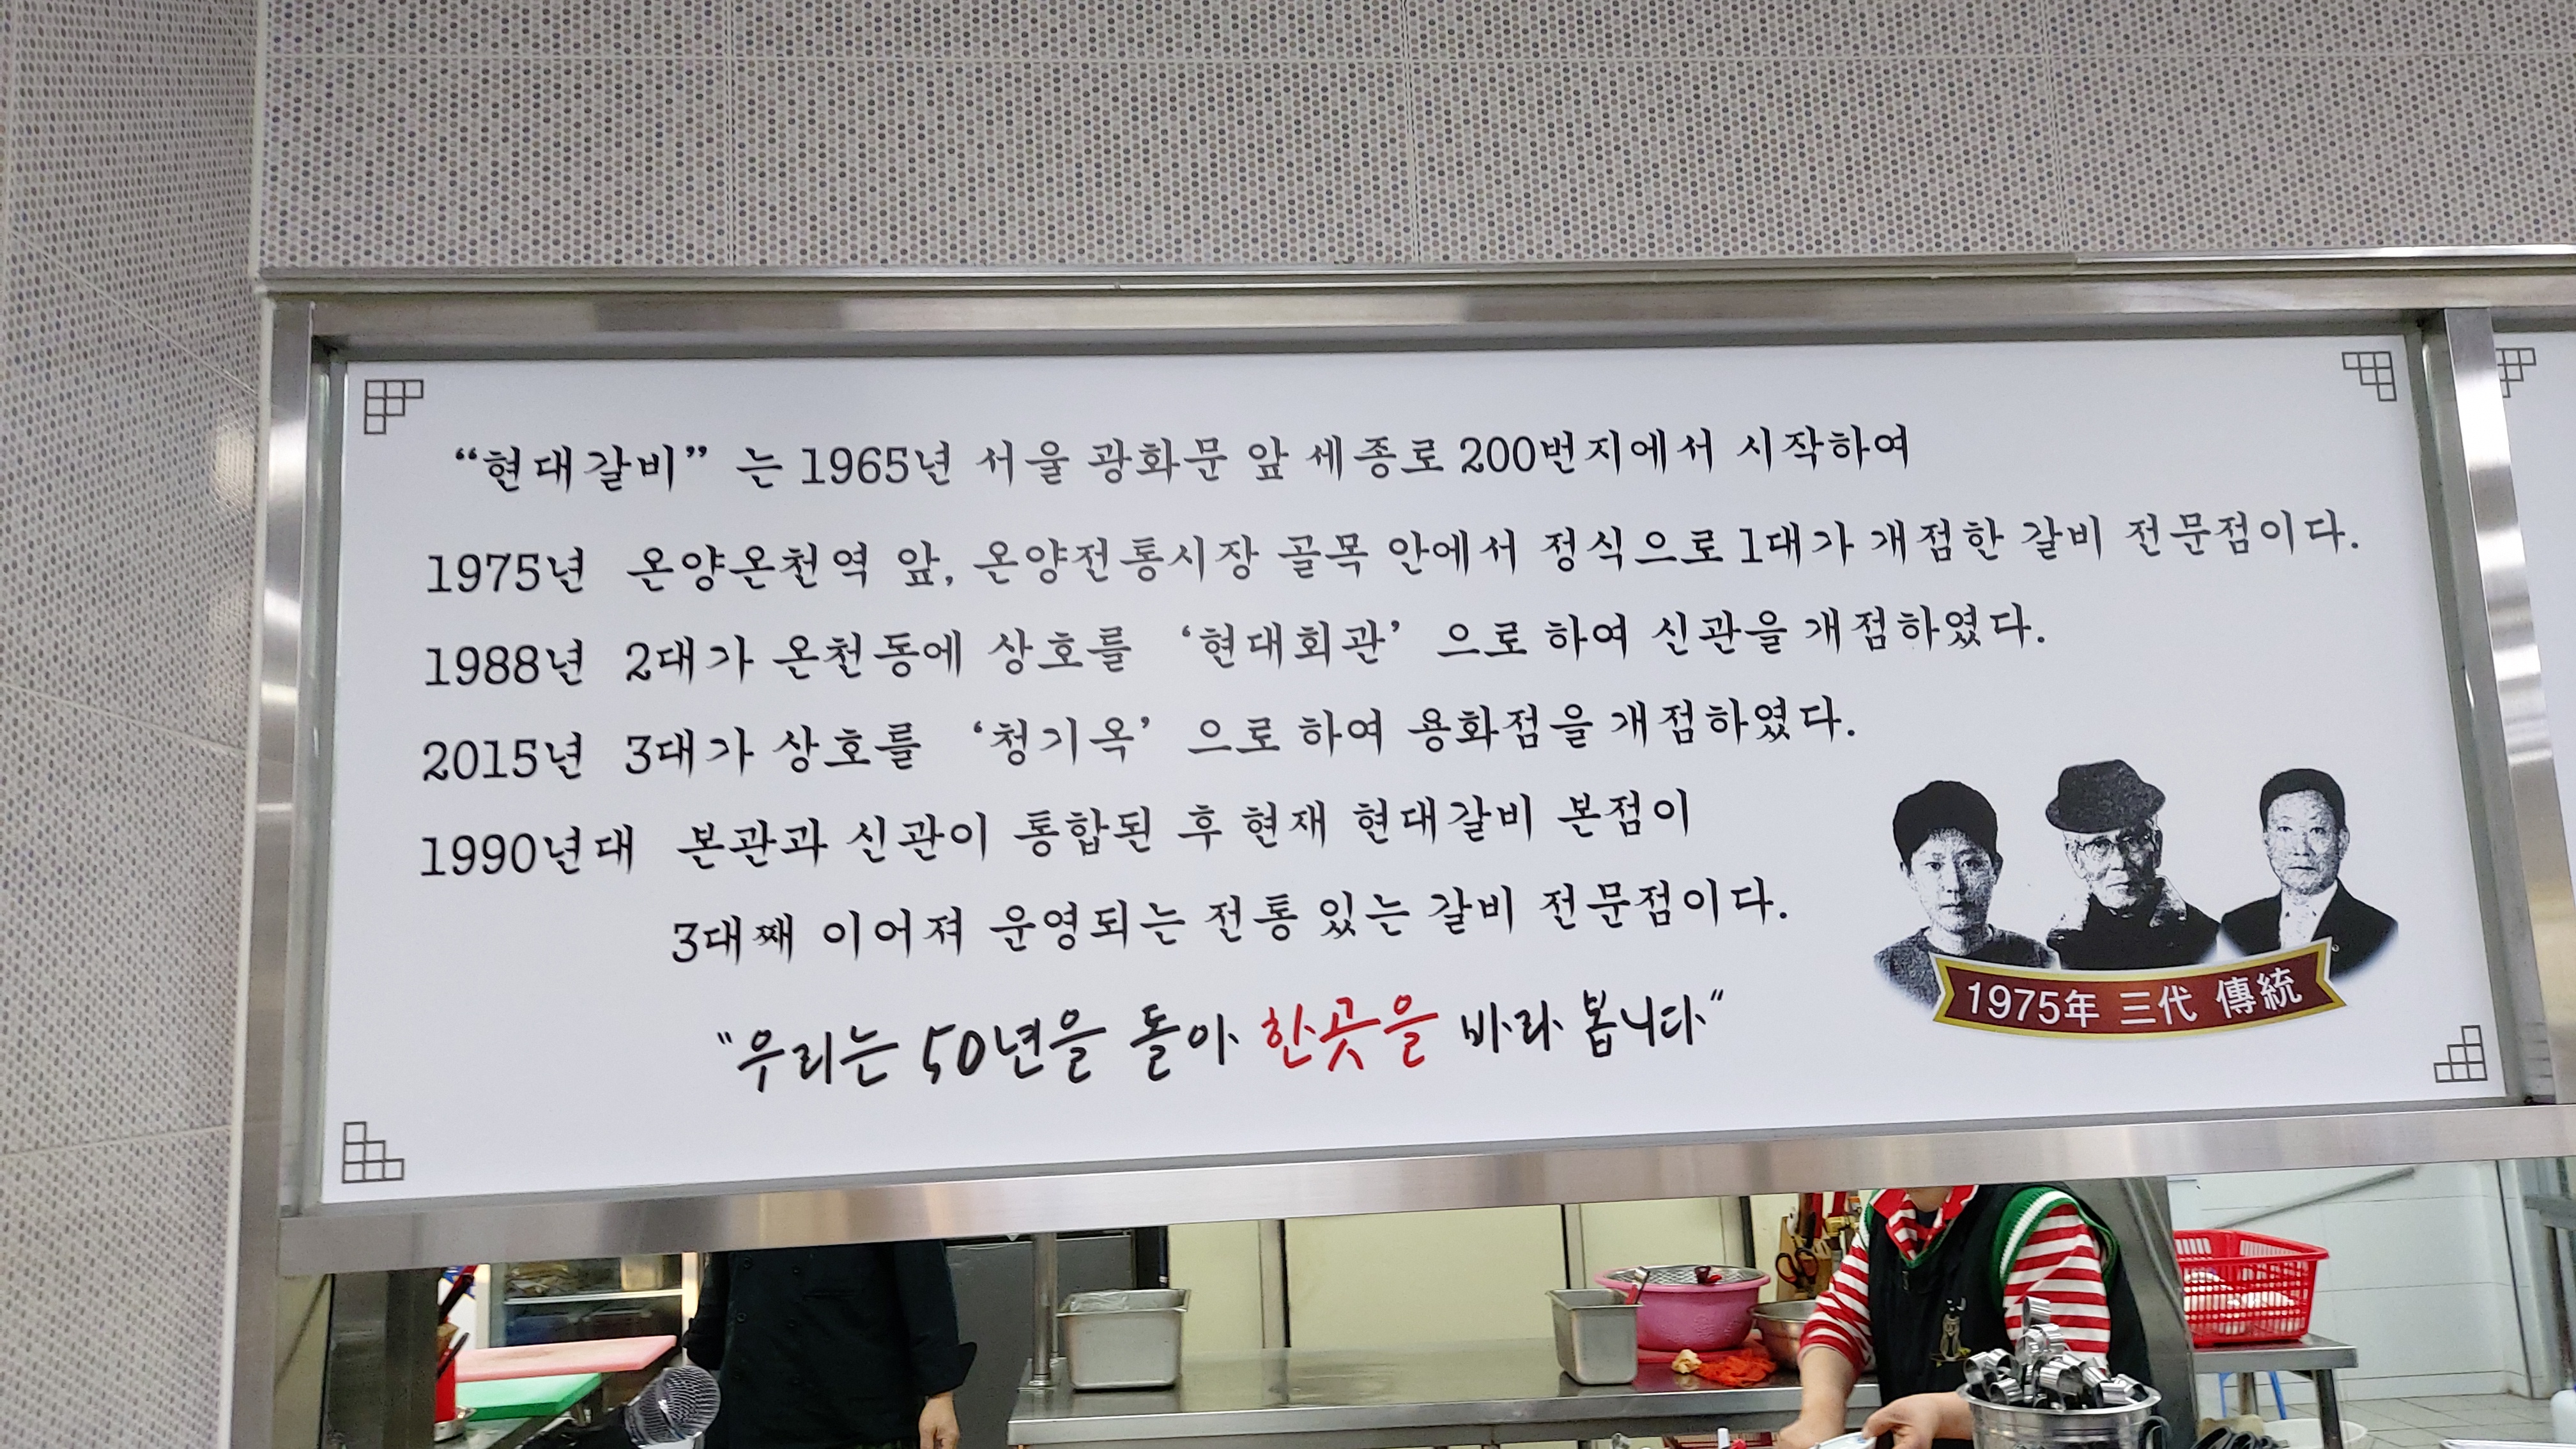 “현대갈비” 는 1965년 서울 광화문 앞 세종로 200번지에서 시작하여
1975년 온양온천역 앞, 온양전통시장 골목 안에서 정식으로 1대가 개점한 갈비 전문점이다.
1988년 2대가 온천동에 상호를 ‘현대회관’ 으로 하여 신관을 개점하였다.
2015년 3대가 상호를 ‘청기옥’ 으로 하여 용화점을 개점하였다.
1990년대 본관과 신관이 통합된 후 현재 현대갈비 본점이
3대째 이어져 운영되는 전통 있는 갈비 전문점이다.
"우리는 50년을 돌아 한곳을 바라 봅니다"
1975年 三代 傳統